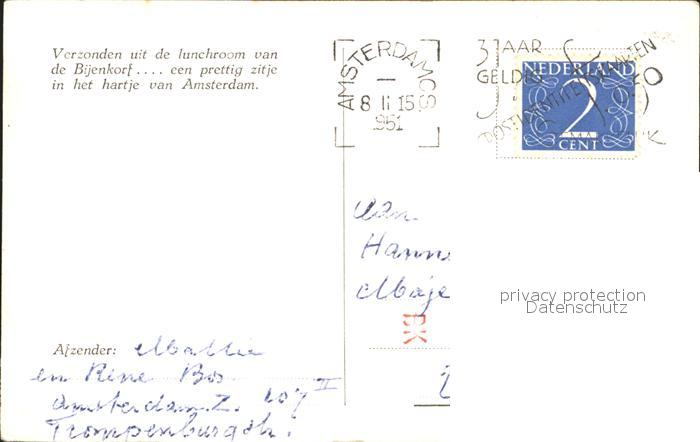 Verzonden uit de lunchroom van
de Bijenkorf .... een prettig zitje
in het hartje van Amsterdam.
AMSTERDAM CS
8 II 15
1951
JAAR
GELDE
NEDERLAND
2
CENT
Aan
Hanne
privacy protection
Datenschutz
BK
Afzender:
en Rene Bos
Amsterdam. Z. 107 II